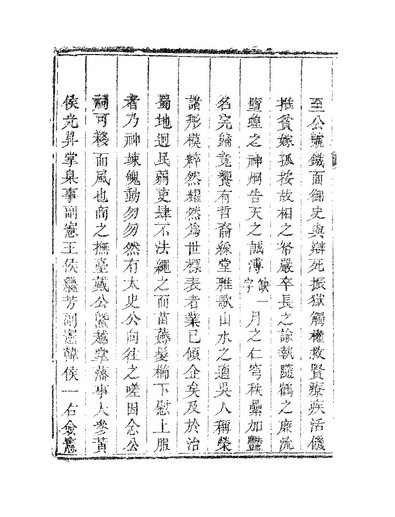 至公號鐵面御史與辯死振獄觸權救賢療疾活饑
推貧嫁孤按故相之帑嚴卒長之諭執隨鶴之廉流
蝗之神炯告天之誠溥缺字一月之仁穹秩纍加豔
名完歸竟饗有哲裔綵堂雅歌山水之適吳人稱榮
諸形模粹然耀然為世標表者業已傾企矣及於治
蜀地遐民弱吏肆不法繩之而苗薅髮櫛下慰上服
者乃神竦魄動勿勿然有太史公向往之嗟因念公
祠可 而風也商之撫臺戴公 越掌藩事大參黃
侯克昇掌臬事副憲王侯繼芳副憲韓侯一右僉憲